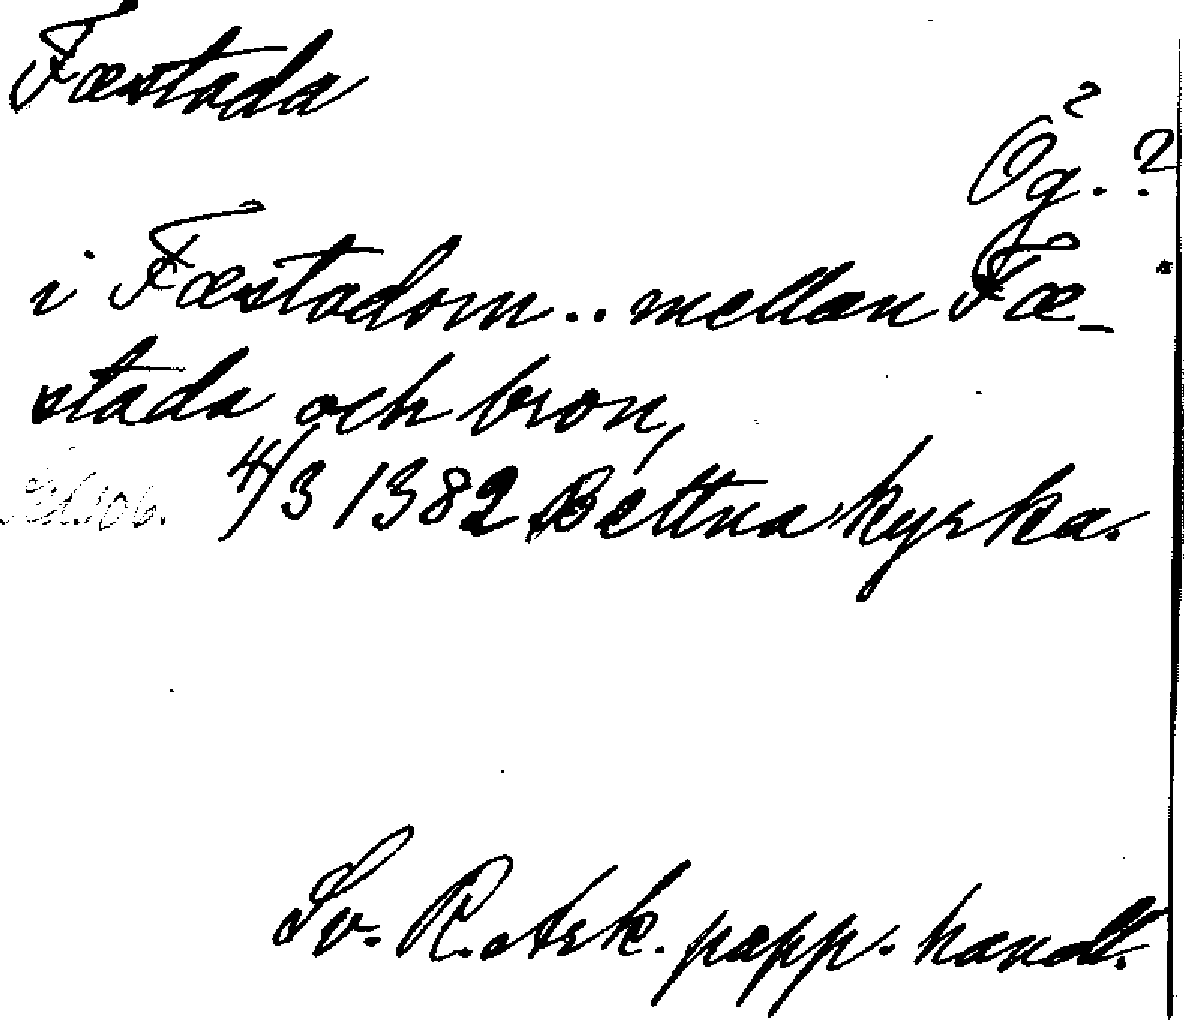 Fæstada
?
Ög. ?
i Fæstadom .. mellan Fæ-
stada och bron,
4/3 1382 Bettna kyrka.
Sv. R. Ark. papp. handl.